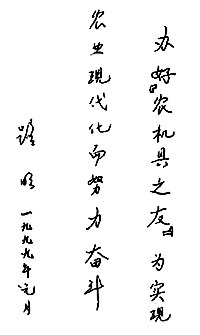 办好《农机具之友》为实现
农业现代化而努力奋斗
一九九九年元月